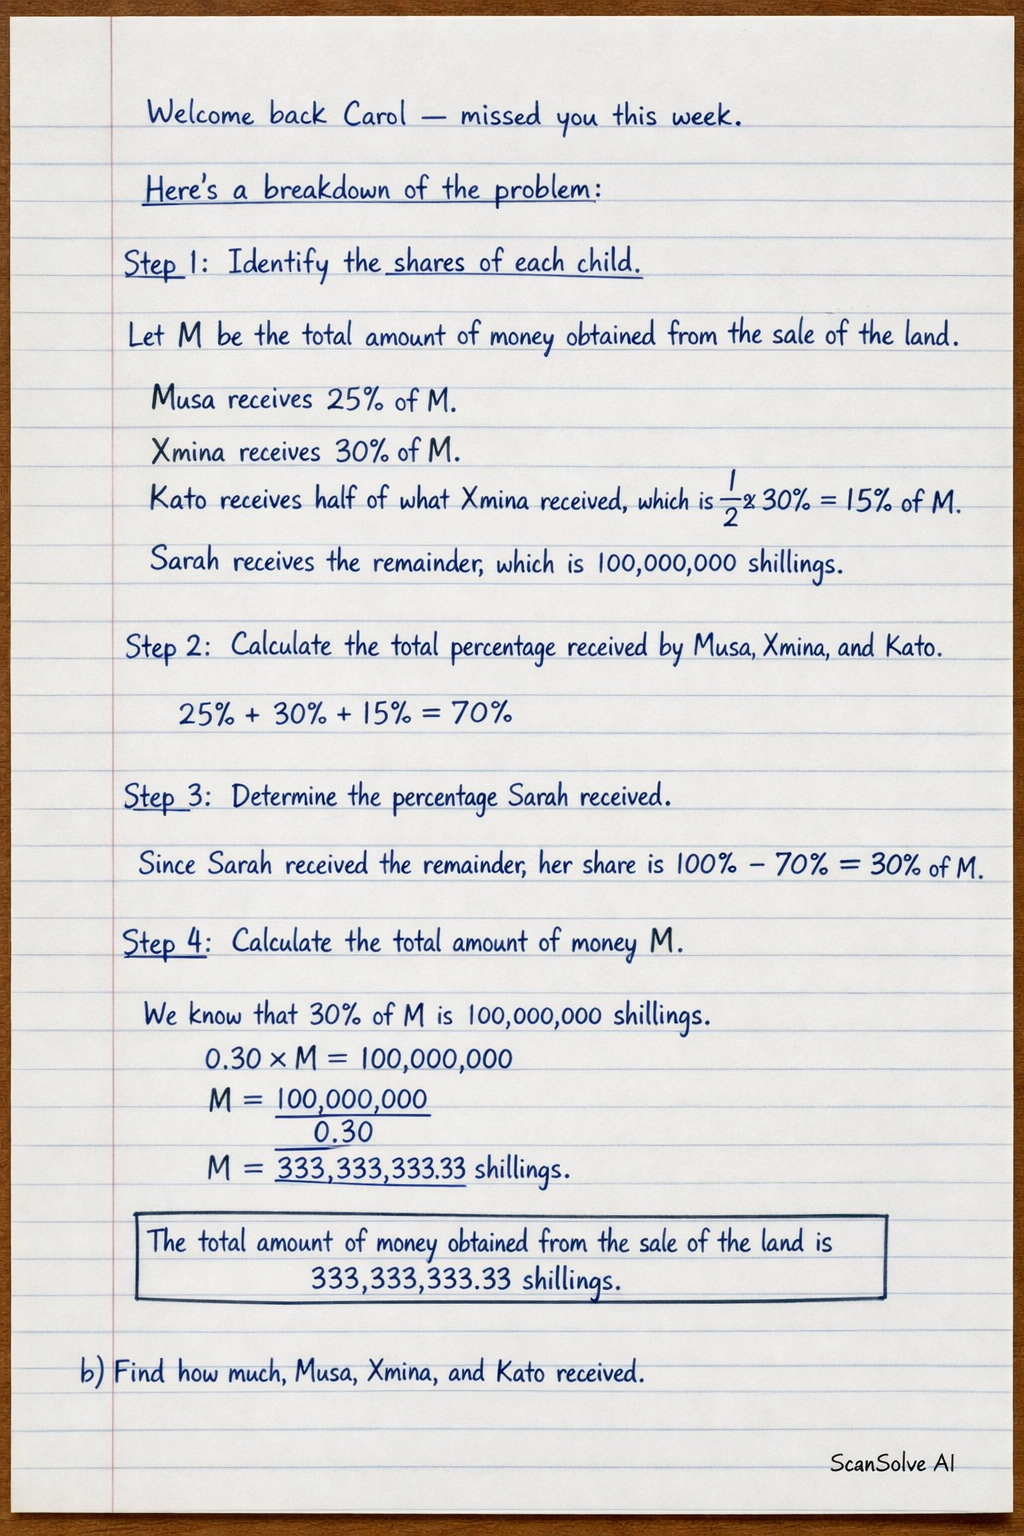 Welcome back Carol — missed you this week.
Here's a breakdown of the problem:
Step 1: Identify the shares of each child.
Let M be the total amount of money obtained from the sale of the land.
Musa receives 25% of M.
Xmina receives 30% of M.
Kato receives half of what Xmina received, which is 1/2 x 30% = 15% of M.
Sarah receives the remainder, which is 100,000,000 shillings.
Step 2: Calculate the total percentage received by Musa, Xmina, and Kato.
25% + 30% + 15% = 70%
Step 3: Determine the percentage Sarah received.
Since Sarah received the remainder, her share is 100% − 70% = 30% of M.
Step 4: Calculate the total amount of money M.
We know that 30% of M is 100,000,000 shillings.
0.30 × M = 100,000,000
M = 100,000,000
0.30
M = 333,333,333.33 shillings.
The total amount of money obtained from the sale of the land is
333,333,333.33 shillings.
b) Find how much, Musa, Xmina, and Kato received.
ScanSolve AI